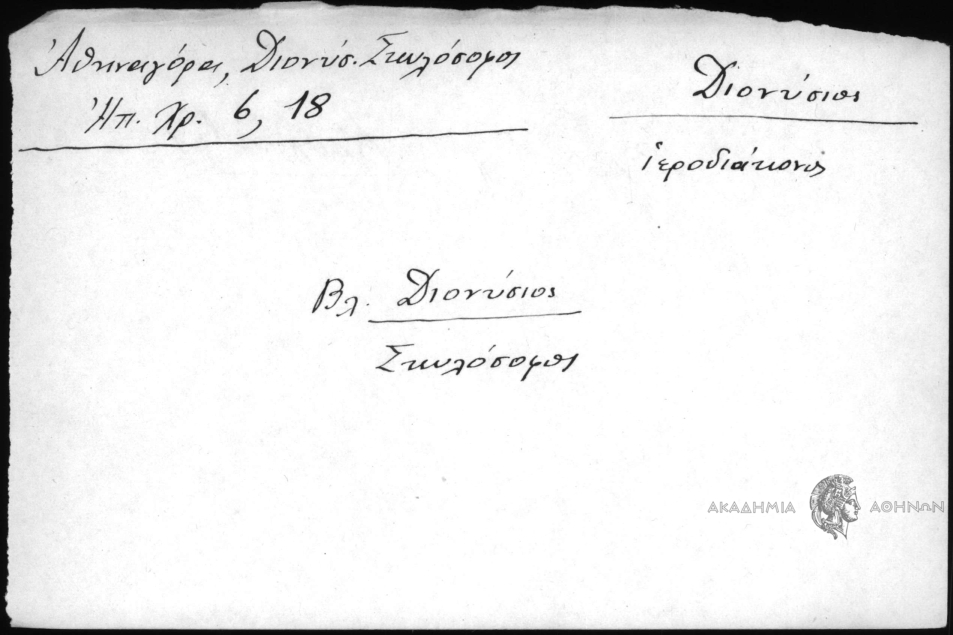 Ἀθηναγόρας, Διονύσ. Σκυλόσοφος
Ἠπ. Χρ. 6, 18
Διονύσιος
ἱεροδιάκονος
Βλ. Διονύσιος
Σκυλόσοφος
ΑΚΑΔΗΜΙΑ ΑΘΗΝΩΝ